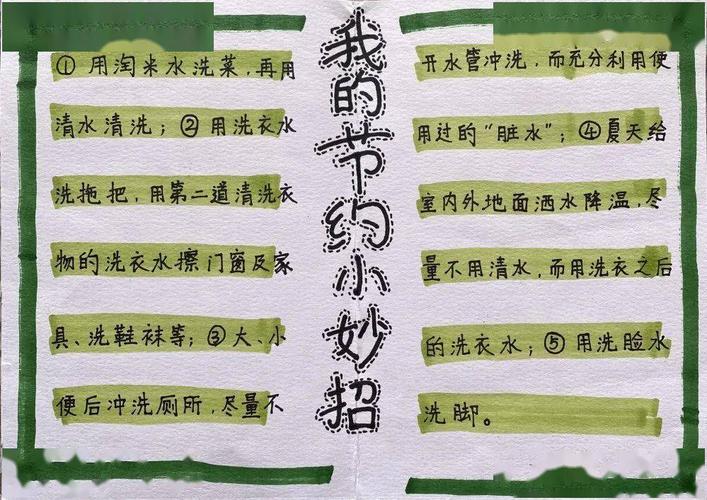 我的节约小妙招
①用淘米水洗菜,再用
清水清洗;②用洗衣水
洗拖把,用第二道清洗衣
物的洗衣水擦门窗及家
具、洗鞋袜等;③大、小
便后冲洗厕所,尽量不
开水管冲洗,而充分利用使
用过的“脏水”;④夏天给
室内外地面洒水降温,尽
量不用清水,而用洗衣之后
的洗衣水;⑤用洗脸水
洗脚。